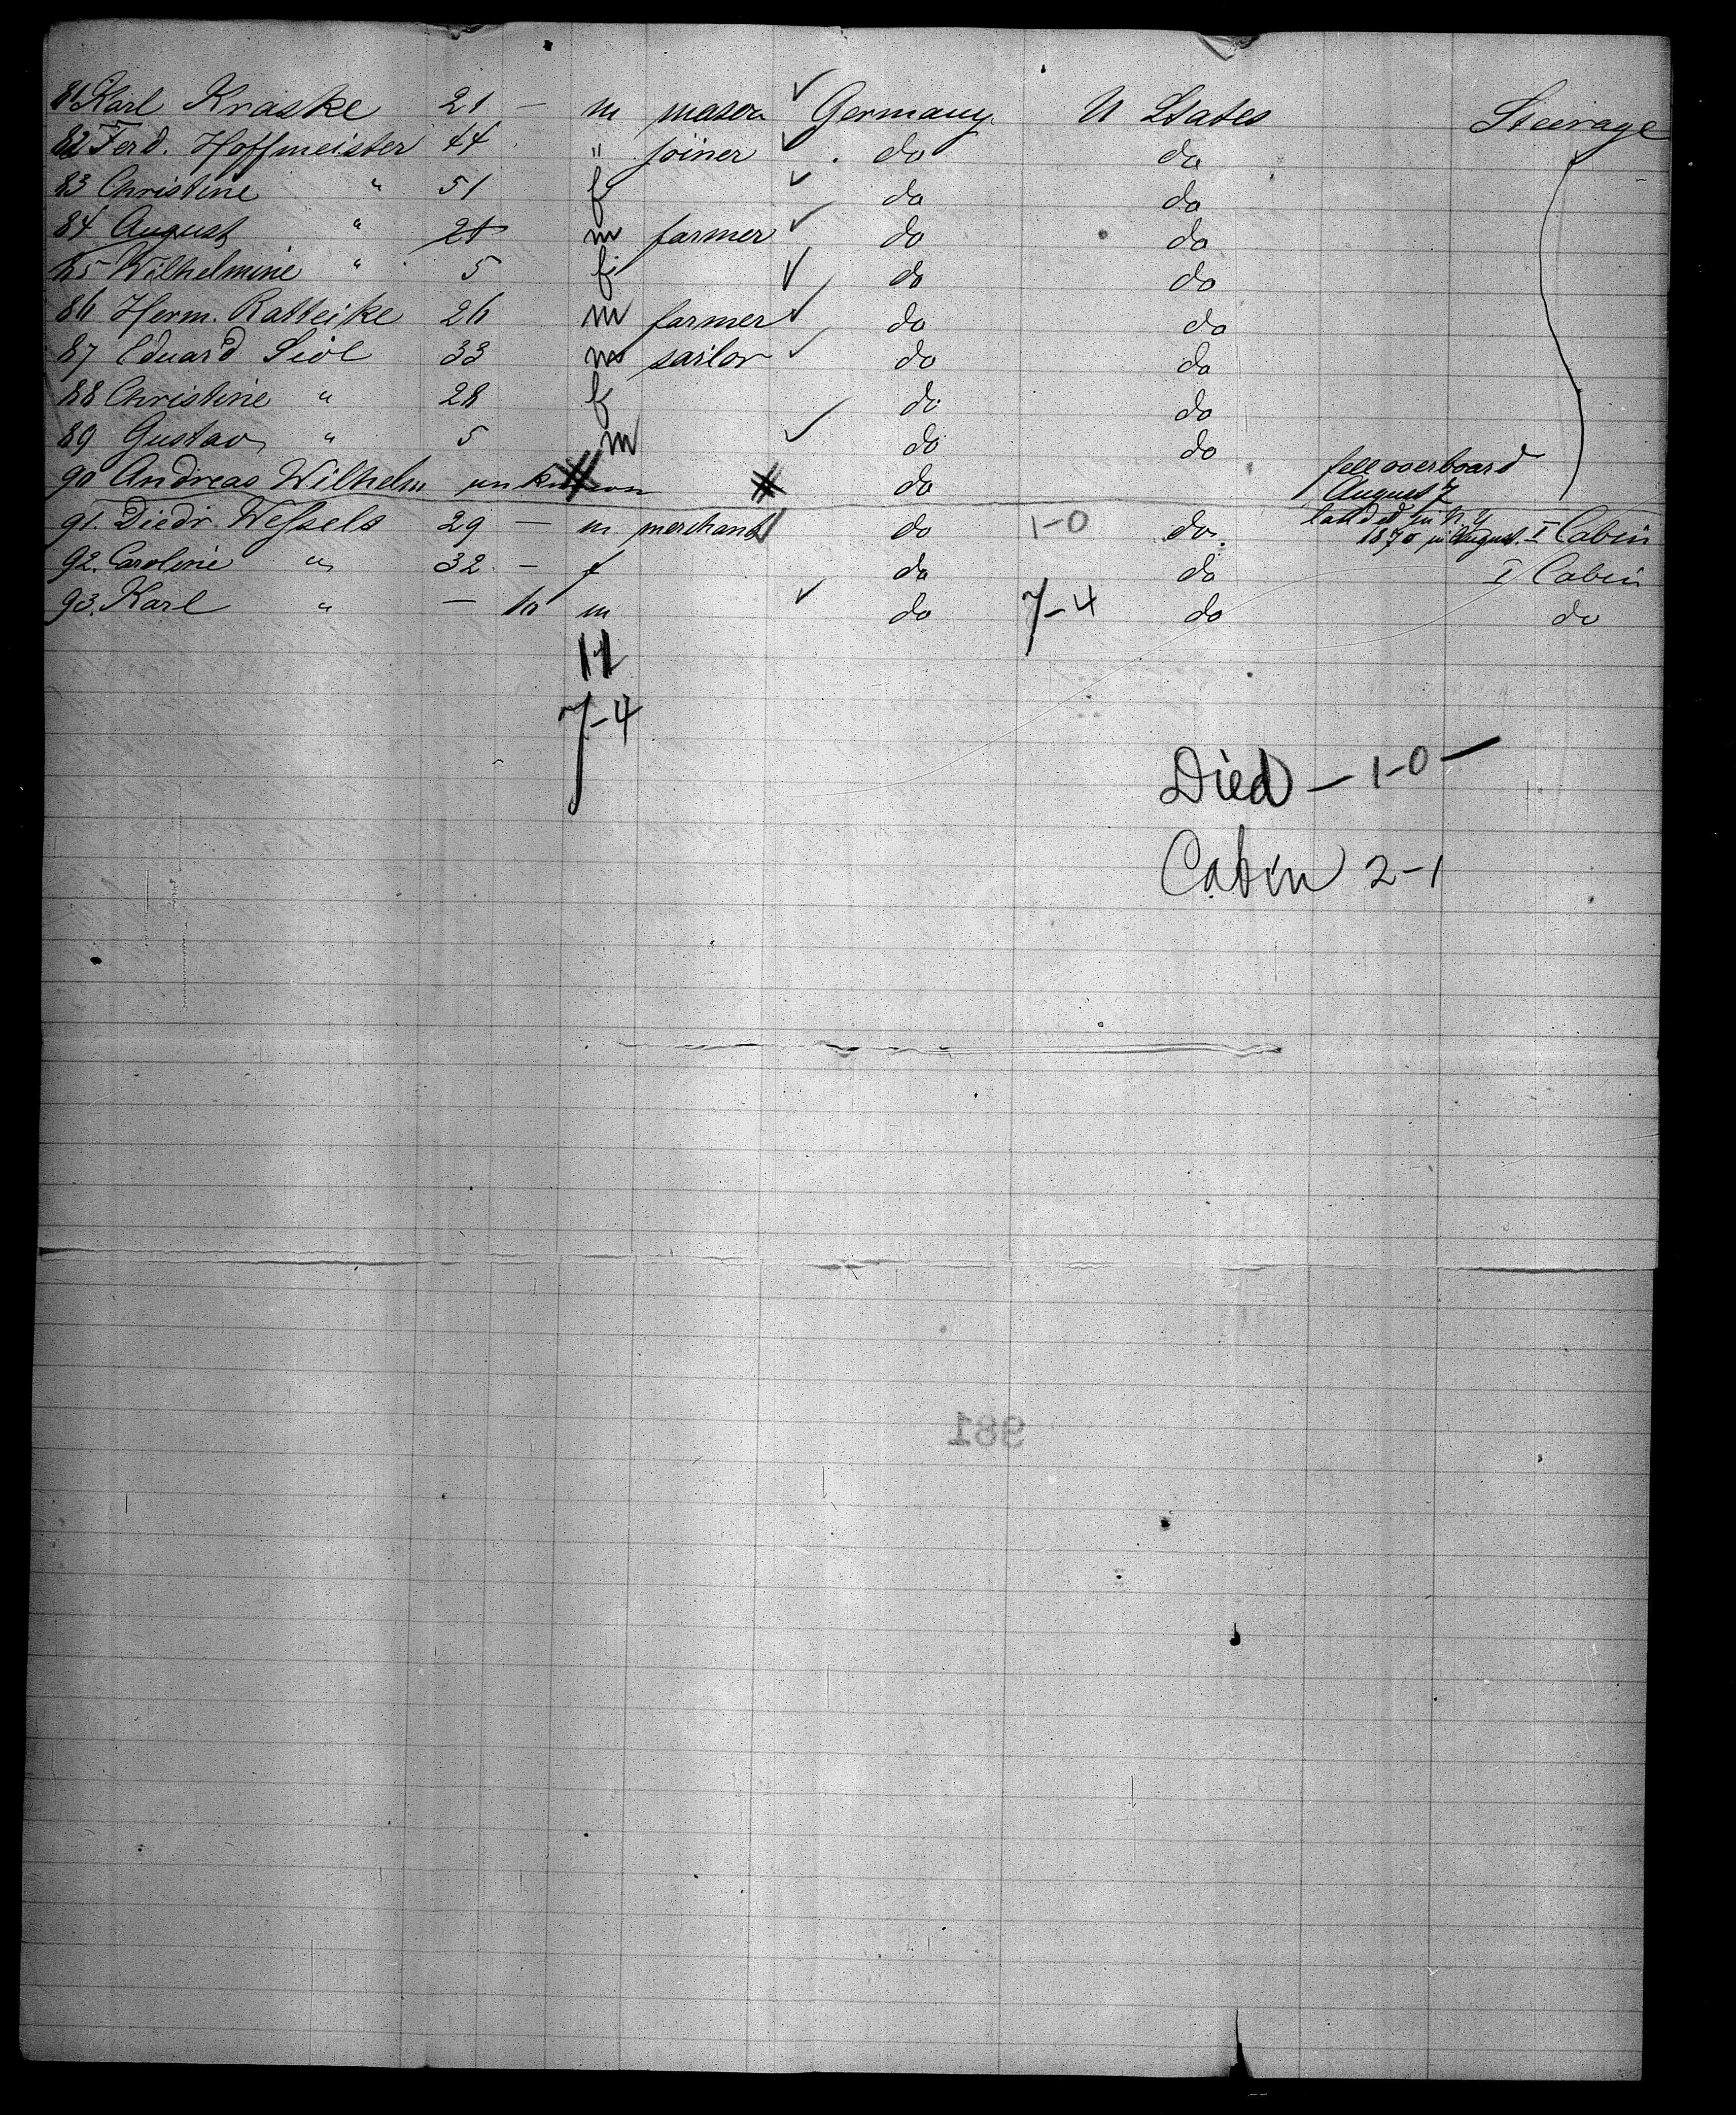 81 Karl Kraske 21 — m mason ✓ Germany U States Steerage
82 Ferd. Hoffmeister 44 " joiner ✓ do do
83 Christine " 51 f ✓ do do
84 August " 21 m farmer ✓ do do
85 Wilhelmine " 5 f ✓ do do
86 Herm. Ratteike 26 m farmer ✓ do do
87 Eduard Siol 33 m sailor ✓ do do
88 Christine " 28 f do do
89 Gustav " 5 m ✓ do do
90 Andreas Wilhelm unknown do fell overboard
August 7
91. Diedr. Weſsels 29 — m merchant do 1-0 do. landed in N.Y
1870 in August. I Cabin
92. Caroline " 32 — f do do I Cabin
93. Karl " — 10 m ✓ do 7-4 do do
11
7-4
Died — 1-0 —
Cabin 2-1
981